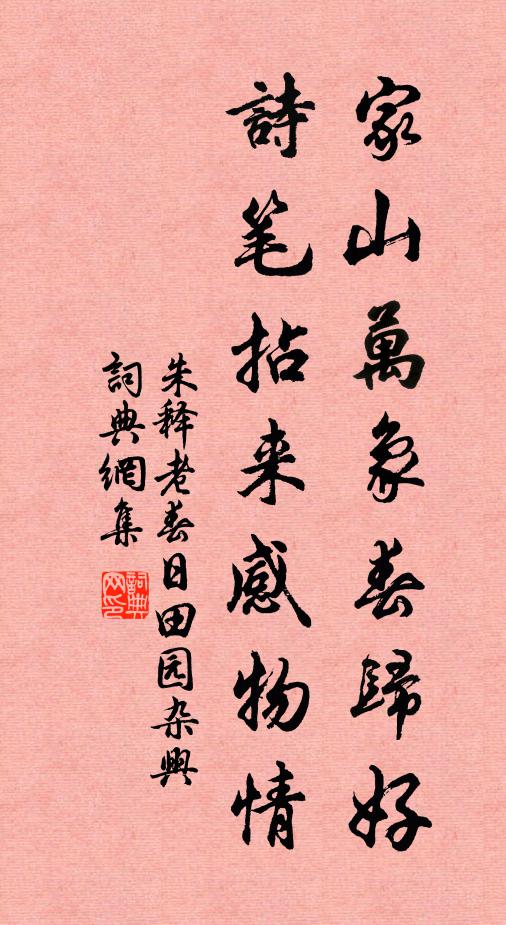 家山萬象春歸好
詩笔拈来感物情
朱释老春日田园杂興
詞典網集
詞典网印